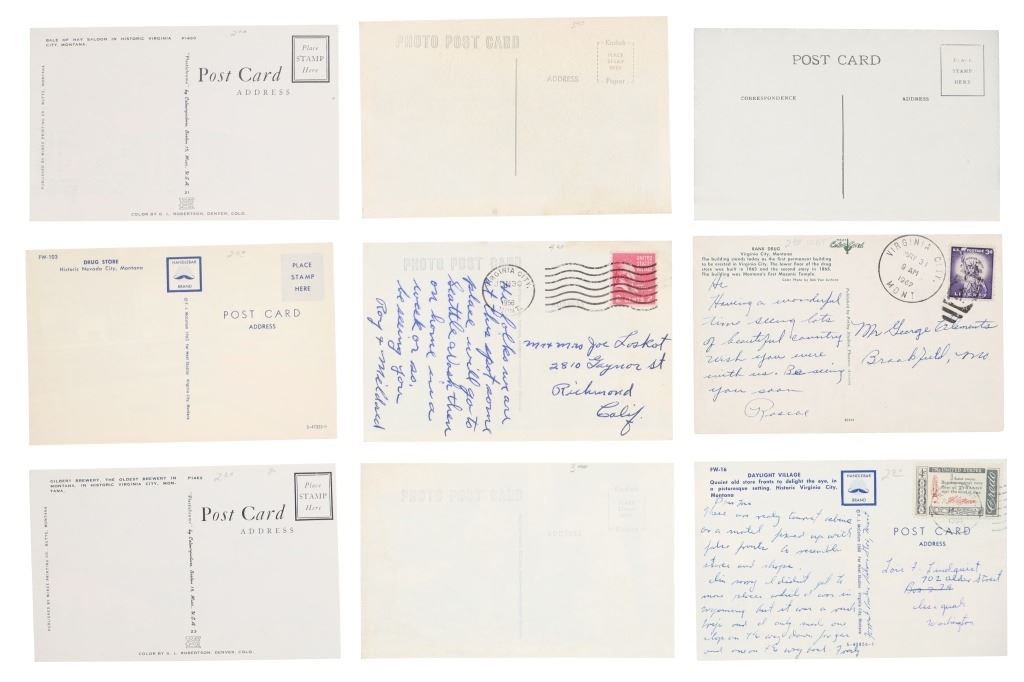 BALE OF HAY SALOON IN HISTORIC VIRGINIA CITY, MONTANA. P1460
Place
STAMP
Here
Post Card
ADDRESS
COLOR BY G. L. ROBERTSON, DENVER, COLO.
PHOTO POST CARD
Kodak
PLACE
STAMP
HERE
Paper
ADDRESS
POST CARD
STAMP
HERE
CORRESPONDENCE
ADDRESS
FW-103
DRUG STORE
Historic Nevada City, Montana
HANDLEBAR
BRAND
PLACE
STAMP
HERE
POST CARD
ADDRESS
PHOTO POST CARD
VIRGINIA CITY,
1956
UNITED STATES
Hi folks we are
in this spot some
place. will go to
Seattle Wash then
on home in a
week or so.
be seeing you
Roy & Mildred
Mr & Mrs Joe Loskot
2810 Gaynor St
Richmond
Calif.
RANK DRUG
Virginia City, Montana
The building stands today as the first permanent building
to be erected in Virginia City. The lower floor of the drug
store was built in 1863 and the second story in 1865.
The building was Montana's first Masonic Temple.
VIRGINIA CITY,
31
9 AM
1962
MONT
LIBERTY
3¢
Hi
Having a wonderful
time seeing lots
of beautiful country
wish you were
with us. Be seeing
you soon
Roscoe
Mr George Clements
Brookfield, Mo
GILBERT BREWERY, THE OLDEST BREWERY IN
MONTANA, IN HISTORIC VIRGINIA CITY, MONTANA.
Place
STAMP
Here
Post Card
ADDRESS
COLOR BY G. L. ROBERTSON, DENVER, COLO.
PHOTO POST CARD
ADDRESS
FW-16
DAYLIGHT VILLAGE
Quaint old store fronts to delight the eye, in
a picturesque setting. Historic Virginia City,
Montana
HANDLEBAR
BRAND
UNITED STATES
POST CARD
ADDRESS
These are really tourist cabins
or a motel fixed up with
false fronts to resemble
stores and shops.
I'm sorry I didn't get to
more places while I was in
Wyoming but it was a
and I only made one
stop on the way down for gas
and one on the way back
702 Alder Street